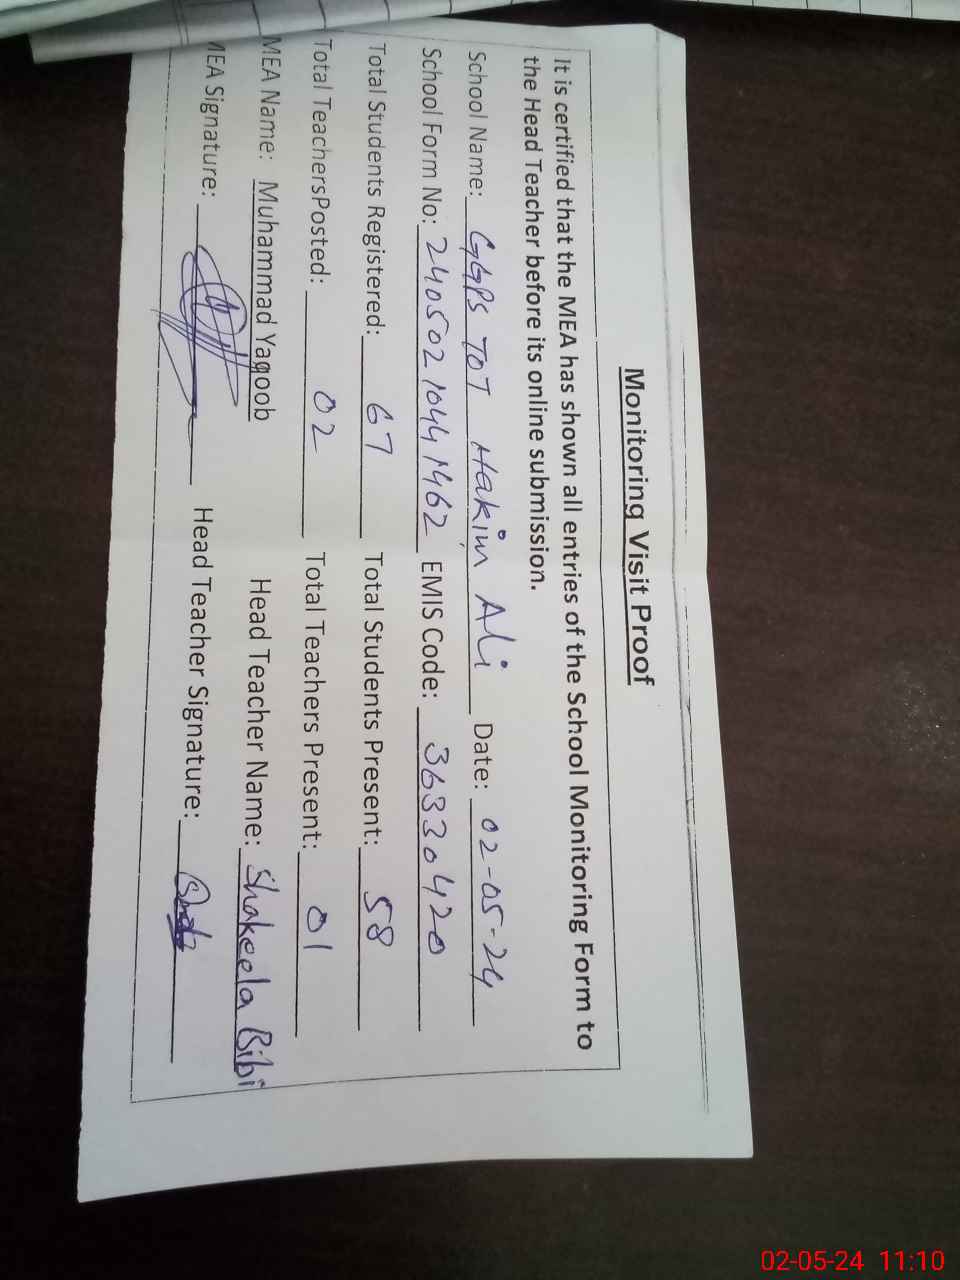 Monitoring Visit Proof
It is certified that the MEA has shown all entries of the School Monitoring Form to
the Head Teacher before its online submission.
School Name: GGPS TOT Hakim Ali Date: 02-05-24
School Form No: 24050210441462 EMIS Code: 36330420
Total Students Registered: 67 Total Students Present: 58
Total TeachersPosted: 02 Total Teachers Present: 01
MEA Name: Muhammad Yaqoob Head Teacher Name: Shakeela Bibi
MEA Signature: Head Teacher Signature:
02-05-24 11:10